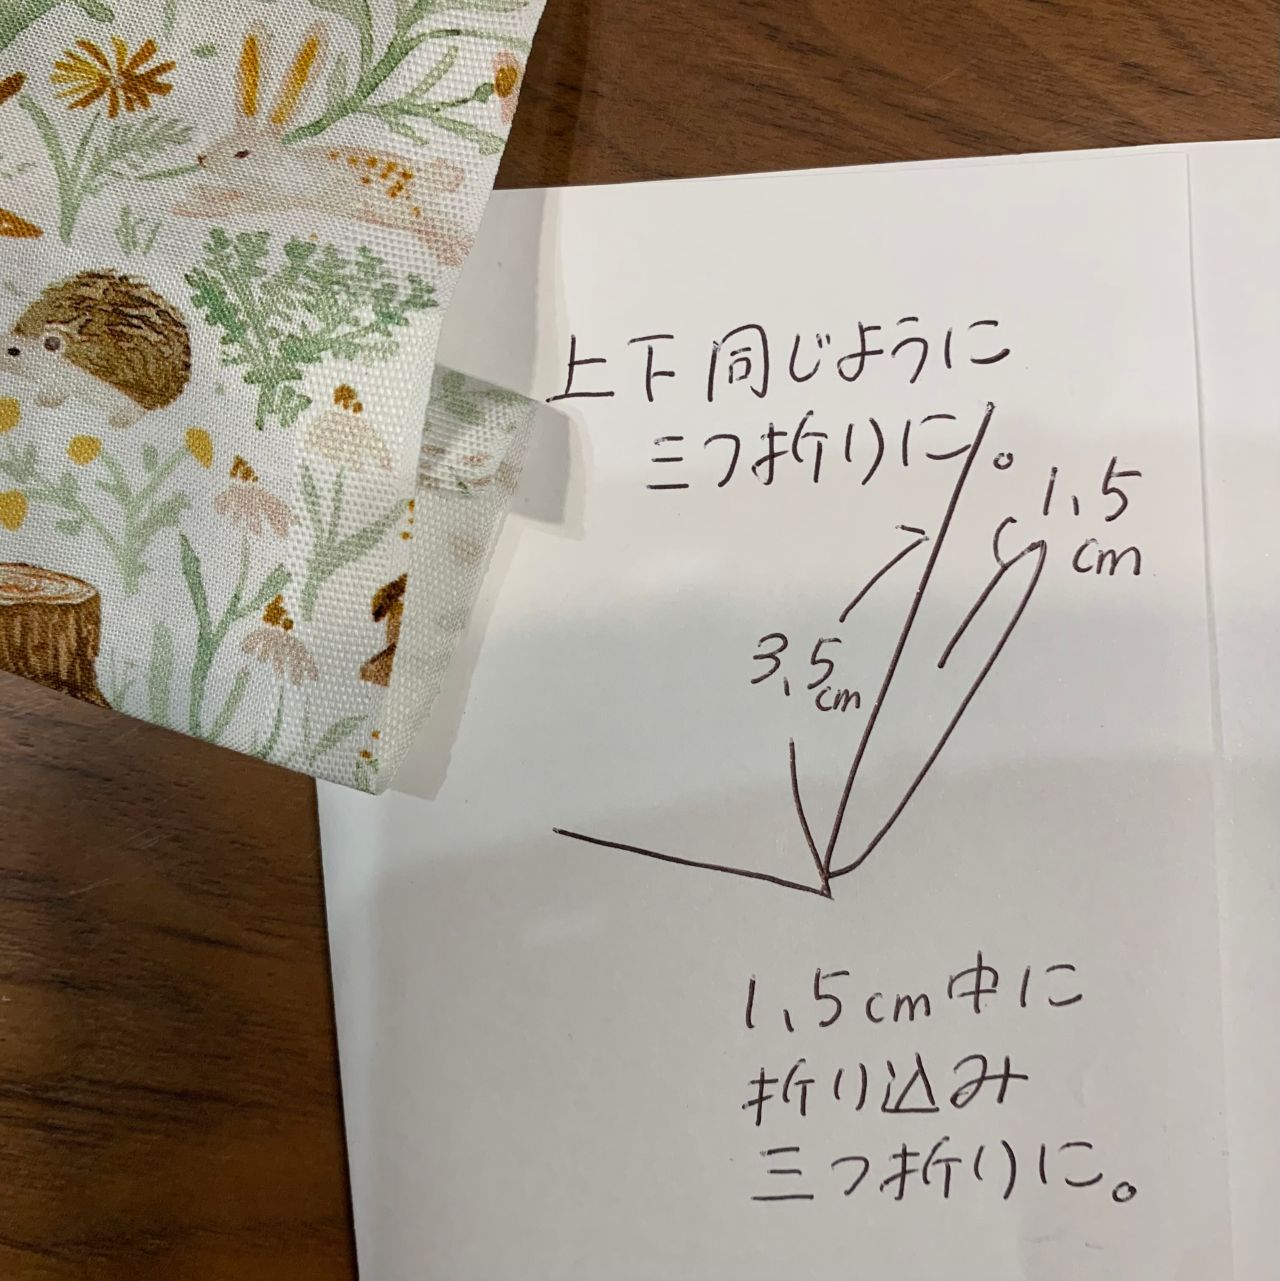 上下同じように
三つ折りに。
1.5
cm
3.5
cm
1.5cm中に
折り込み
三つ折りに。